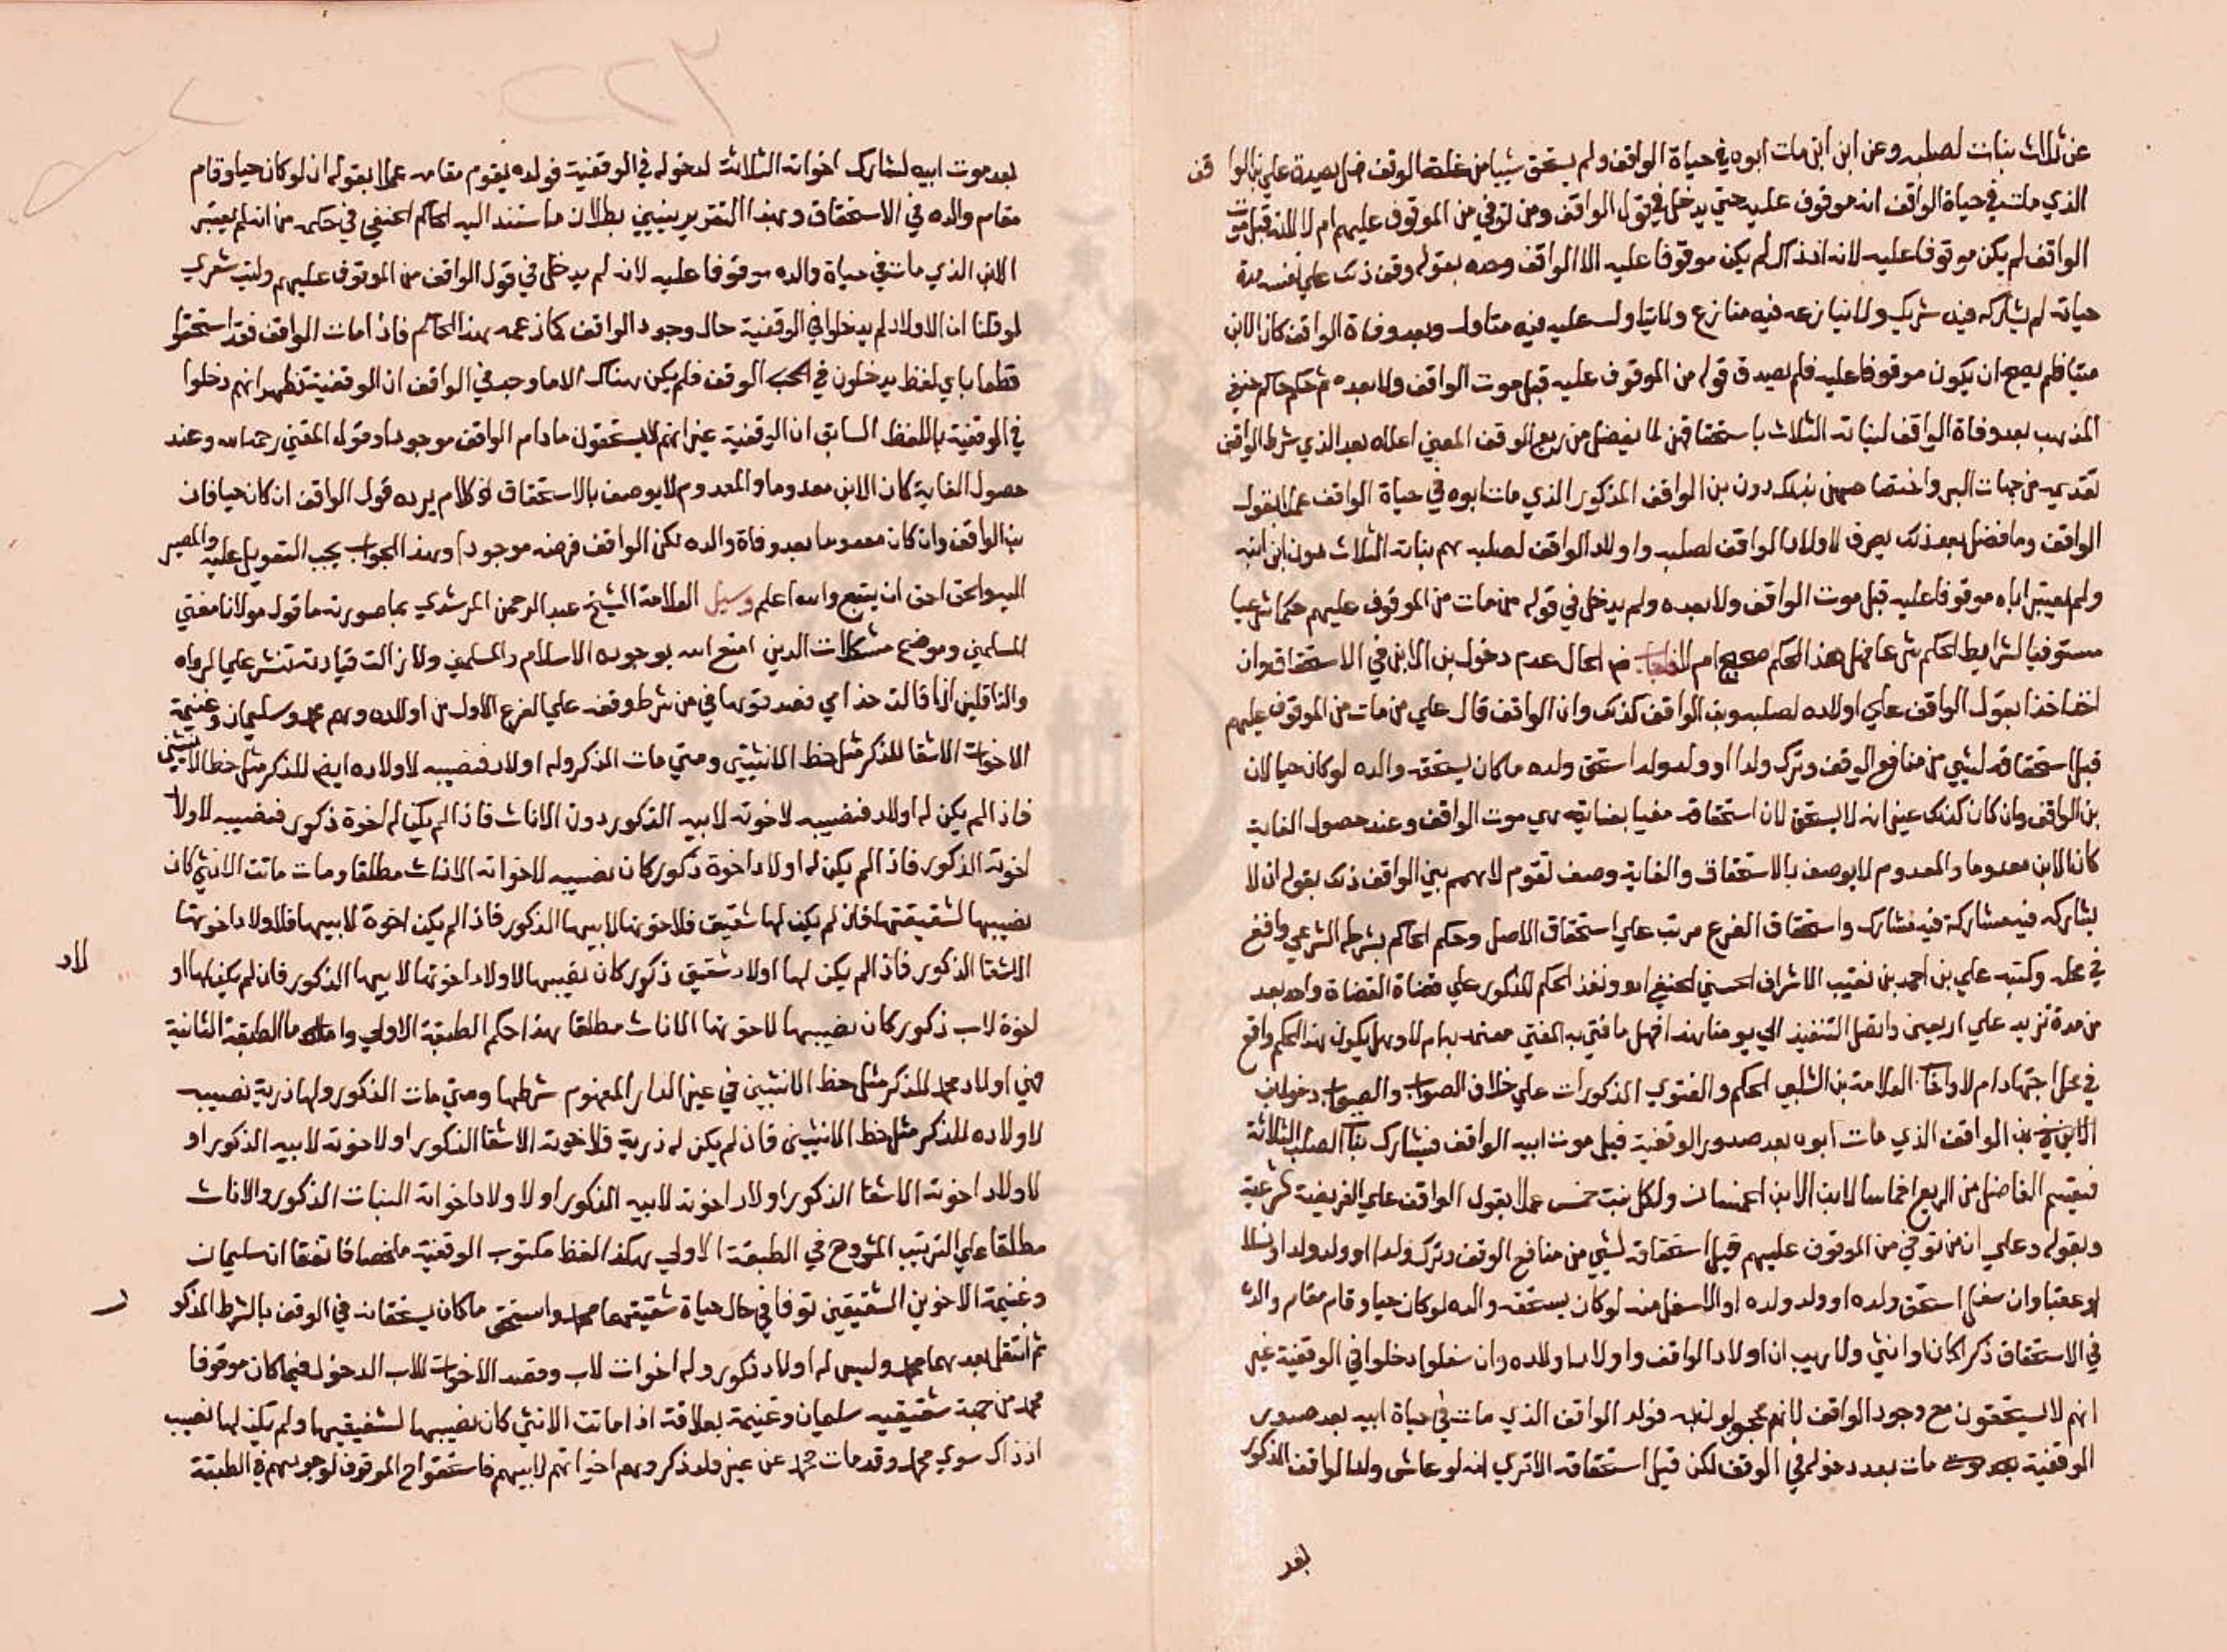 عن ثلاث بنات لصلبه وعن ابن ابن مات ابوه في حياة الواقف ولم يستحق شيا من غلة الوقف فهل يصدق علي بن الواقف
الذي مات في حياة الواقف انه موقوف عليه حتي يدخل في قول الواقف ومن توفي من الموقوف عليهم ام لا لانه قبل موت
الواقف لم يكن موقوفا عليه لانه اذ ذاك لم يكن موقوفا عليه الا الواقف وحده بقوله وقف ذلك علي نفسه مدة
حياته لم يشاركه فيه شريك ولا ينازعه فيه منازع ولا يتاول عليه فيه متاول وبعد وفاة الواقف كان الابن
ميتا فلم يصح ان يكون موقوفا عليه فلم يصدق قوله من الموقوف عليه قبل موت الواقف ولا بعده ثم حكم حاكم حنفي
المذهب بعد وفاة الواقف لبناته الثلاث باستحقاقهن لما يفضل من ريع الوقف المعين اعلاه بعد الذي شرط الواقف
تقديمه من جهات البر واختصاصهن بذلك دون بن الواقف المذكور الذي مات ابوه في حياة الواقف عملا بقول
الواقف وما فضل بعد ذلك يصرف لاولاد الواقف لصلبه واولاد الواقف لصلبه هم بناته الثلاث دون ابن ابنه
ولم يعتبر اباه موقوفا عليه قبل موت الواقف ولا بعده ولم يدخل في قوله من مات من الموقوف عليهم حكما شرعيا
مستوفيا لشرايط الحكم شرعا فهل هذا الحكم صحيح ام لا فاجاب الحال عدم دخول بن الابن في الاستحقاق وان
اخذا بقول الواقف علي اولاده لصلبه وبن الواقف كذلك وان الواقف قال علي من مات من الموقوف عليهم
قبل استحقاقه لشي من منافع الوقف وترك ولدا او ولد ولد استحق ولده ما كان يستحقه والده لو كان حيا لان
بن الواقف وان كان كذلك غير انه لا يستحق لان استحقاقه مغيا بغاية هي موت الواقف وعند حصول الغاية
كان الابن معدوما والمعدوم لا يوصف بالاستحقاق والغاية وصف تقوم لا بهم بني الواقف ذلك بقوله ان لا
يشاركه فيه مشاركة فيه مشارك واستحقاق الفرع مرتب علي استحقاق الاصل وحكم الحاكم بشرطه الشرعي واقع
في محله وكتبه علي بن احمد بن نقيب الاشراف الحسني الحنفي اه ونفذ الحكم المذكور علي قضاة القضاة واحد بعد
من مدة تزيد علي اربعين واتصل التنفيذ الي يومنا هذا فهل ما افتي به المفتي معتمد به ام لا وهل يكون هذا الحكم واقع
في محل اجتهاد ام لا واجاب العلامة بن الشلبي الحكم والفتوي المذكورات علي خلاف الصواب والصواب دخول ابن
الابن بن الواقف الذي مات ابوه بعد صدور الوقفية قبل موت ابيه الواقف فيشارك بنات الصلب الثلاثة
فيقسم الفاضل من الريع اخماسا لابن الابن الخمسان ولكل بنت خمس عملا بقول الواقف علي الفريضة الشرعية
وبقوله وعلي ان من توفي من الموقوف عليهم قبل استحقاقه لشي من منافع الوقف وترك ولدا او ولد ولد او نسلا
او عقبا وان سفل استحق ولده او ولد ولده او الاسفل منه لو كان يستحقه والده لو كان حيا وقام مقام والده
في الاستحقاق ذكرا كان او انثي ولا ريب ان اولاد الواقف واولاد اولاده وان سفلوا دخلوا في الوقفية غير
انهم لا يستحقون مع وجود الواقف لانهم محجوبون به فولد الواقف الذي مات في حياة ابيه بعد صدور
الوقفية مات بعد دخوله في الوقف لكن قبل استحقاقه الا تري انه لو عاش ولد الواقف المذكور
بعد
بعد موت ابيه لشارك اخواته الثلاثة لدخوله في الوقفية فولده يقوم مقامه عملا بقوله ان لو كان حيا وقام
مقام والده في الاستحقاق وبهذا التقرير يتبين بطلان ما ستند اليه الحاكم الحنفي في حكمه من انه لم يعتبر
الابن الذي مات في حياة والده موقوفا عليه لانه لم يدخل في قول الواقف من الموقوف عليهم وليت شعري
لو قلنا ان الاولاد لم يدخلوا في الوقفية حال وجود الواقف كما زعمه هذا الحاكم فاذا مات الواقف فقد استحقوا
قطعا باي لفظ يدخلون في الوقف فلم يكن هناك الا ما وجد في الواقف ان الوقفية فظهر انهم دخلوا
في الوقفية باللفظ السابق ان الوقفية غير انهم لا يستحقون ما دام الواقف موجودا وقوله المفتي رحمه الله وعند
حصول الغاية كان الابن معدوما والمعدوم لا يوصف بالاستحقاق كلام يرده قول الواقف ان كان حيا فان
بن الواقف وان كان معدوما بعد وفاة والده لكن الواقف فرضه موجودا وبهذا الجواب يجب التعويل عليه والمصير
اليه والحق احق ان يتبع والله اعلم وسيل العلامة الشيخ عبد الرحمن المرشدي بما صورته ما قول مولانا مفتي
المسلمين وموضح مشكلات الدين امتع الله بوجوده الاسلام والمسلمين ولا زالت فتاويه تنشر علي الرواه
والناقلين اذا قالت حذامي فصدقوها في من شرط وقفه علي الفرع الاول من اولاده وهم محمد وسليمان وغنيمة
الاخوات الاشقا للذكر مثل حظ الانثيين ومتي مات الذكر وله اولاد فنصيبه لاولاده ايضا للذكر مثل حظ الانثيين
فاذا لم يكن له اولاد فنصيبه لاخوته لابيه الذكور دون الاناث فاذا لم يكن له اخوة ذكور فنصيبه لاولاد
اخوته الذكور فاذا لم يكن له اولاد اخوة ذكور كان نصيبه لاخواته الاناث مطلقا ومات ماتت الانثي كان
نصيبها لشقيقتها فان لم يكن لها شقيق فلاخوتها لابيها الذكور فاذا لم يكن اخوة لابيها فلاولاد اخوتها
الاشقا الذكور فاذا لم يكن لها اولاد شقيق ذكور كان نصيبها لاولاد اخوتها لابيها الذكور فان لم يكن لها اولاد
اخوة لاب ذكور كان نصيبها لاخوتها الاناث مطلقا هذا حكم الطبقة الاولي واما الطبقة الثانية
فهي اولاد محمد للذكر مثل حظ الانثيين في عين الدار المفهوم شرطها ومتي مات الذكور ولها ذرية نصيبه
لاولاده للذكر مثل حظ الانثيين فان لم يكن له ذرية فلاخوته الاشقا الذكور او لاخوته لابيه الذكور او
لاولاد اخوته الاشقا الذكور او لاد اخوته لابيه الذكور او لاولاد اخواته البنات الذكور والاناث
مطلقا علي الترتيب المشروح في الطبقة الاولي هكذا لفظ مكتوب الوقفية ملخصا فاتفقا ان سليمان
وغنيمة الاخوين الشقيقين توفا في حال حياة شقيقهما محمد واستحق ما كان يستحقانه في الوقف بالشرط المذكور
ثم انتقل بعدهما محمد وليس له اولاد ذكور وله اخوات لاب وقصد الاخوات للاب الدخول فيما كان موقوفا
محمد من جهة شقيقيه سليمان وغنيمة بعلاقة اذا ماتت الانثي كان نصيبها لشقيقيها ولم يكن لها نصيب
اذ ذاك سوي محمد وقد مات محمد عن غير ولد ذكر وهم اخواتهم لابيهم فاستحقوا الموقوف لوجودهم في الطبقة